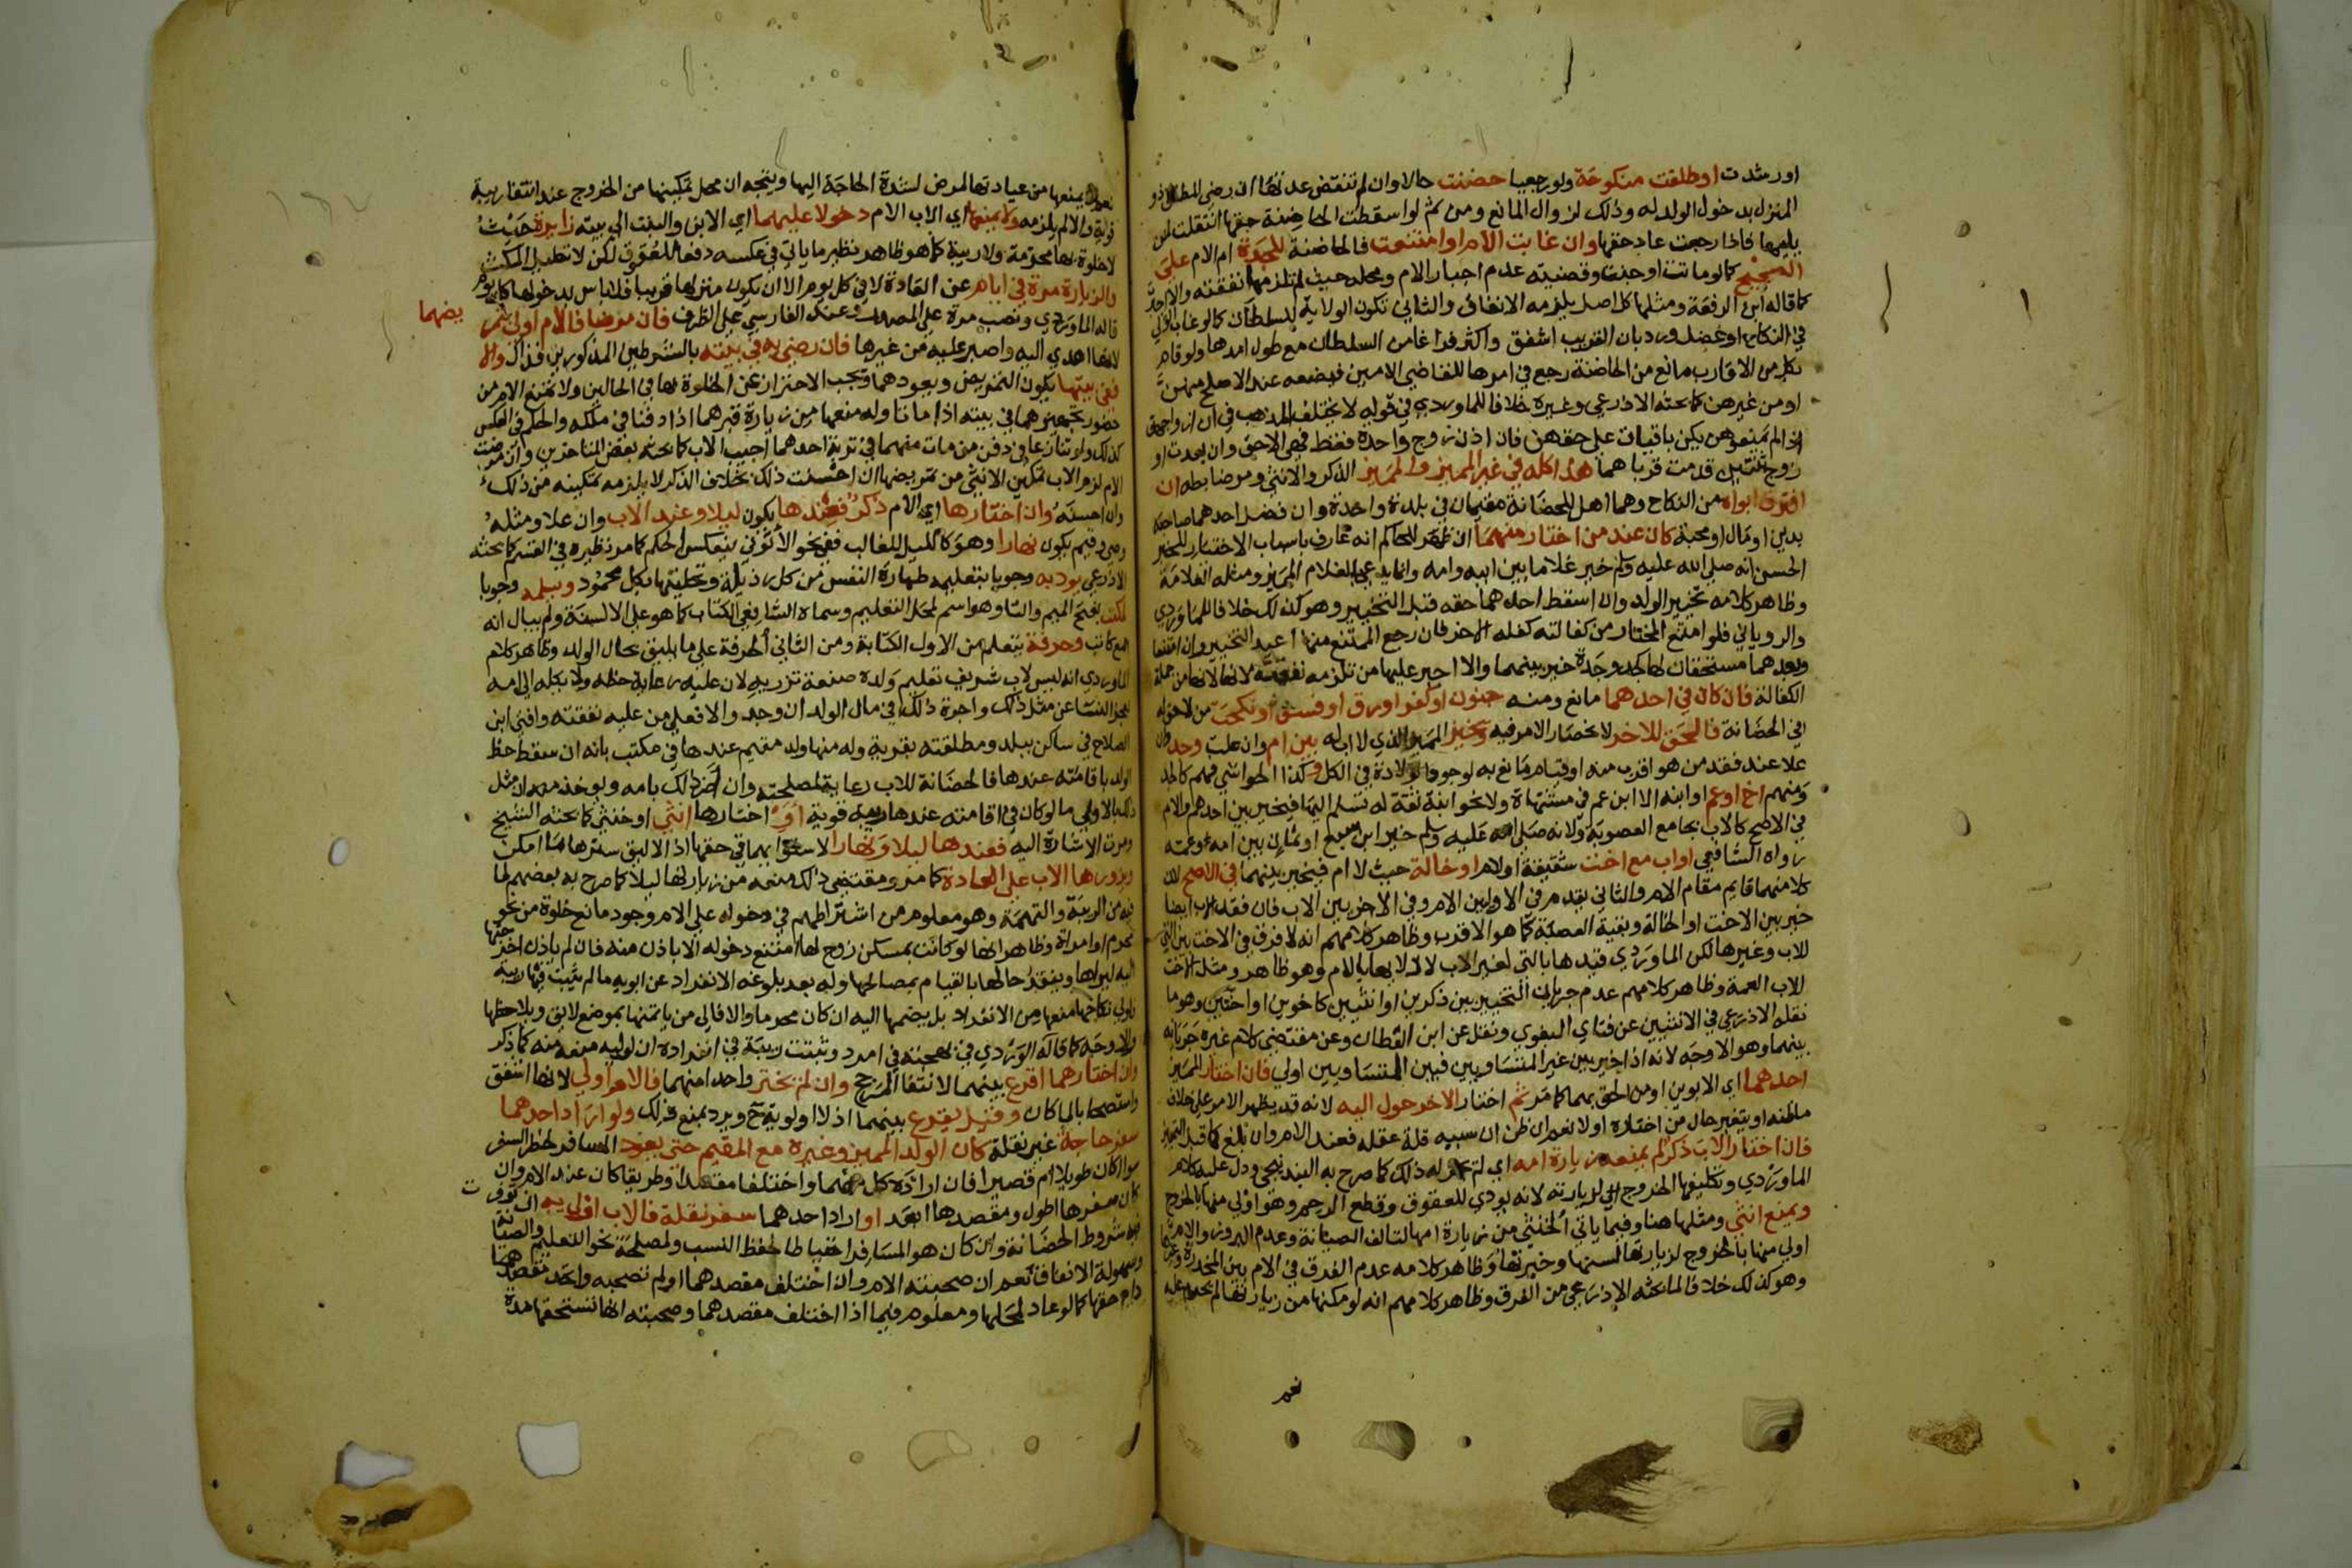 او رشدت او طلقت منكوحة ولو رجعيا حضنت حالا وان لم تنقض عدتها ان رضي المطلق ذو
المنزل بدخول الولد له وذلك لزوال المانع ومن ثم لو اسقطت الحاضنة حقها انتقلت لمن
يليها فاذا رجعت عاد حقها وان غابت الام او امتنعت فالحاضنة للجدة ام الام على
الصحيح كما لو ماتت او جنت وقضيته عدم اجبار الام ومحله حيث لم تلزمها نفقته والا جبرت
كما قاله ابن الرفعة ومثلها كل اصل يلزمه الانفاق والثاني تكون الولاية للسلطان كما لو غاب الولي
في النكاح او عضل ورد بان القريب اشفق واكثر فراغا من السلطان مع طول امدها ولو قام
بكل من الاقارب مانع من الحاضنة رجع في امرها للقاضي الامين فيضعه عند الاصلح منهن
او من غيرهن كما بحثه الاذرعي وغيره خلافا للماوردي في قوله لا يختلف المذهب في ان ازواجهن
اذا لم يمنعوهن يكن باقيات على حقهن فان اذن زوج واحدة فقط فهي الاحق وان بعدت او
زوج ثنتين قدمت قرباهما هذا كله في غير المميز والمميز الذكر والانثى ومر ضابطه ان
افترق ابواه من النكاح وهما اهل للحضانة مقيمان في بلدة واحدة وان فضل احدهما صاحبه
بدين او مال او محبة كان عند من اختار منهما ان ظهر للحاكم انه عارف باسباب الاختيار للخبر
الحسن انه صلى الله عليه وسلم خير غلاما بين ابيه وامه وانما يدعى بالغلام المميز ومثله الغلامة
وظاهر كلامه تخيير الولد وان اسقط احدهما حقه قبل التخيير وهو كذلك خلافا للماوردي
والروياني فلو امتنع المختار من كفالته كفله الاخر فان رجع الممتنع منهما اعيد التخيير وان امتنعا
وبعدهما مستحقان لها كجد وجدة خير بينهما والا اجبر عليها من تلزمه نفقته لانها من جملة
الكفالة فان كان في احدهما مانع ومنه جنون او كفر او رق او فسق او نكحت من لا حق له
في الحضانة فالحق للاخر لانحصار الامر فيه ويخير المميز الذي لا اب له بين ام وان علت وجد وان
علا عند فقد من هو اقرب منه او قيام مانع به لوجود الولادة في الكل وكذا الحواشي فهم كالجد
ومنهم اخ او عم او ابنه الا ابن عم في مشتهاة ولا نحو ابنة ثقة له تسلم اليها فيخير بين احدهم والام
في الاصح كالاب بجامع العصوبة ولانه صلى الله عليه وسلم خير ابن سبع او ثمان بين امه وعمه
رواه الشافعي او اب مع اخت شقيقة او لام او خالة حيث لا ام فيخير بينهما في الاصح لان
كلا منهما قايم مقام الام والثاني يقدم في الاوليين الام وفي الاخريين الاب فان فقد الاب ايضا
خير بين الاخت او الخالة وبقية العصبة كما هو الاقرب وظاهر كلامهم انه لا فرق في الاخت بين التي
للاب وغيرها لكن الماوردي قيدها بالتي لغير الاب لادلائها بالام وهو ظاهر ومثل الاخت
للاب العمة وظاهر كلامهم عدم جريان التخيير بين ذكرين او انثيين كاخوين او اختين وهو ما
نقله الاذرعي في الانثيين عن فتاوي البغوي ونقل عن ابن القطان وعن مقتضى كلام غيره جريانه
بينهما وهو الاوجه لانه اذا خير بين غير المتساويين فبين المتساويين اولى فان اختار المميز
احدهما اي الابوين او من الحق بهما كما مر ثم اختار الاخر حول اليه لانه قد يظهر الامر على خلاف
ما ظنه او يتغير حال من اختاره اولا نعم ان ظن ان سببه قلة عقله فعند الام وان بلغ كما قبل التمييز
فان اختار الاب ذكر لم يمنعه زيارة امه اي لم له ذلك كما صرح به البندنيجي ودل عليه كلام
الماوردي وتكليفها الخروج اليه لزيارته لانه يودي للعقوق وقطع الرحم وهو اولى منها بالخروج
ويمنع انثى ومثلها هنا وفيما ياتي الخنثى من زيارة امها لتالف الصيانة وعدم البروز والام
اولى منها بالخروج لزيارتها لسنها وخبرتها وظاهر كلامه عدم الفرق في الام بين المخدرة وغيرها
وهو كذلك خلافا لما بحثه الاذرعي من الفرق وظاهر كلامهم انه لو مكنها من زيارتها لم يحرم عليه
نعم
يمنعها من عيادتها لمرض لشدة الحاجة اليها ويتجه ان محل تمكينها من الخروج عند انتفا ريبة
قوية والا لم يلزمه ولا يمنعها اي الاب الام دخولا عليهما اي الابن والبنت الى بيته زايرة حيث
لا خلوة بها محرمة ولا ريبة كما هو ظاهر نظير ما ياتي في عكسه دفعا للعقوق لكن لا تطيل المكث
والزيارة مرة في ايام عن العادة لا في كل يوم الا ان يكون منزلها قريبا فلا باس بدخولها كل يوم
قاله الماوردي ونصب مرة على المصدر وعند الفارسي على الظرف فان مرضا فالام اولى
بتمريضهما
لانها اهدى اليه واصبر عليه من غيرها فان رضي به في بيته بالشرطين المذكورين فذاك والا
ففي بيتها يكون التمريض ويعودهما ويجب الاحتراز عن الخلوة بها في الحالين ولا تمنع الام من
حضور تجهيزهما في بيته اذا ماتا وله منعها من زيارة قبرهما اذا دفنا في ملكه والحكم في العكس
كذلك ولو تنازعا في دفن من مات منهما في تربة احدهما اجيب الاب كما بحثه بعض المتاخرين وان مرضت
الام لزم الاب تمكين الانثى من تمريضها ان احسنت ذلك بخلاف الذكر لا يلزمه تمكينه من ذلك
وان احسنه وان اختارها اي الام ذكر فعندها يكون ليلا وعند الاب وان علا ومثله
وصي وقيم يكون نهارا وهو كالليل للغالب ففي نحو الاتوني ينعكس الحكم كما مر نظيره في القسم كما بحثه
الاذرعي يودبه وجوبا بتعليمه طهارة النفس من كل رذيلة وتحليتها بكل محمود ويسلمه وجوبا
لمكتب بفتح الميم والتا وهو اسم لمحل التعليم وسماه الشافعي الكتاب كما هو على الالسنة ولم يبال انه
جمع كاتب وحرفة يتعلم من الاول الكتابة ومن الثاني الحرفة على ما يليق بحال الولد وظاهر كلام
الماوردي انه ليس لاب شريف تعليم ولده صنعة تزريه لان عليه رعاية حظه ولا يكله الى امه
لعجز النسا عن مثل ذلك واجرة ذلك في مال الولد ان وجد والا فعلى من عليه نفقته وافتى ابن
الصلاح في ساكن ببلد ومطلقته بقرية وله منها ولد مقيم عندها في مكتب بانه ان سقط حظ
الولد باقامته عندها فالحضانة للاب رعاية لمصلحته وان اضر ذلك بامه ويوخذ منه ان مثل
ذلك بالاولى ما لو كان في اقامته عندها ريبة قوية او اختارها انثى او خنثى كما بحثه الشيخ
ومرت الاشارة اليه فعندها ليلا ونهارا لاستوايهما في حقها اذ الاليق سترها ما امكن
ويزورها الاب على العادة كما مر ومقتضى ذلك منعه من زيارتها ليلا كما صرح به بعضهم لما
فيه من الريبة والتهمة وهو معلوم من اشتراطهم في دخوله على الام وجود مانع خلوة من نحو
محرم او امراة وظاهر انها لو كانت بمسكن زوج لها امتنع دخوله الا باذن منه فان لم ياذن اخرجتها
اليه ليراها ويتفقد حالها بالقيام بمصالحها وله بعد بلوغه الانفراد عن ابويه ما لم تثبت فيها ريبة
فلولي نكاحها منعها من الانفراد بل يضمها اليه ان كان محرما والا فالى من ياتمنها بموضع لايق ويلاحظها
والاوجه كما قاله الوردي في بهجته في امرد وتثبتت ريبة في انفراده ان لوليه منعه منه كما ذكر
وان اختارهما اقرع بينهما لانتفا المرجح وان لم يختر واحدا منهما فالام اولى لانها اشفق
واستصحابا لما كان وقيل يقرع بينهما اذ لا اولوية ح ويرد بمنع ذلك ولو اراد احدهما
سفر حاجة غير نقلة كان الولد المميز وغيره مع المقيم حتى يعود المسافر لخطر السفر
سوا كان طويلا ام قصيرا فان اراده كل منهما واختلفا مقصدا وطريقا كان عند الام وان
كان سفرها اطول ومقصدها ابعد او اراد احدهما سفر نقلة فالاب اولى به ان توفرت
فيه شروط الحضانة وان كان هو المسافر احتياطا لحفظ النسب ولمصلحة نحو التعليم والصيانة
وسهولة الانفاق نعم ان صحبته الام وان اختلف مقصدهما او لم تصحبه واتحد مقصدهما
دام حقها كما لو عاد لمحلها ومعلوم فيما اذا اختلف مقصدهما وصحبته انها تستحقها مدة